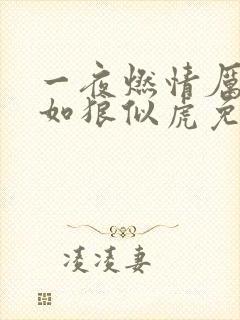 一夜燃情厉
如狼似虎免
凌凌妻